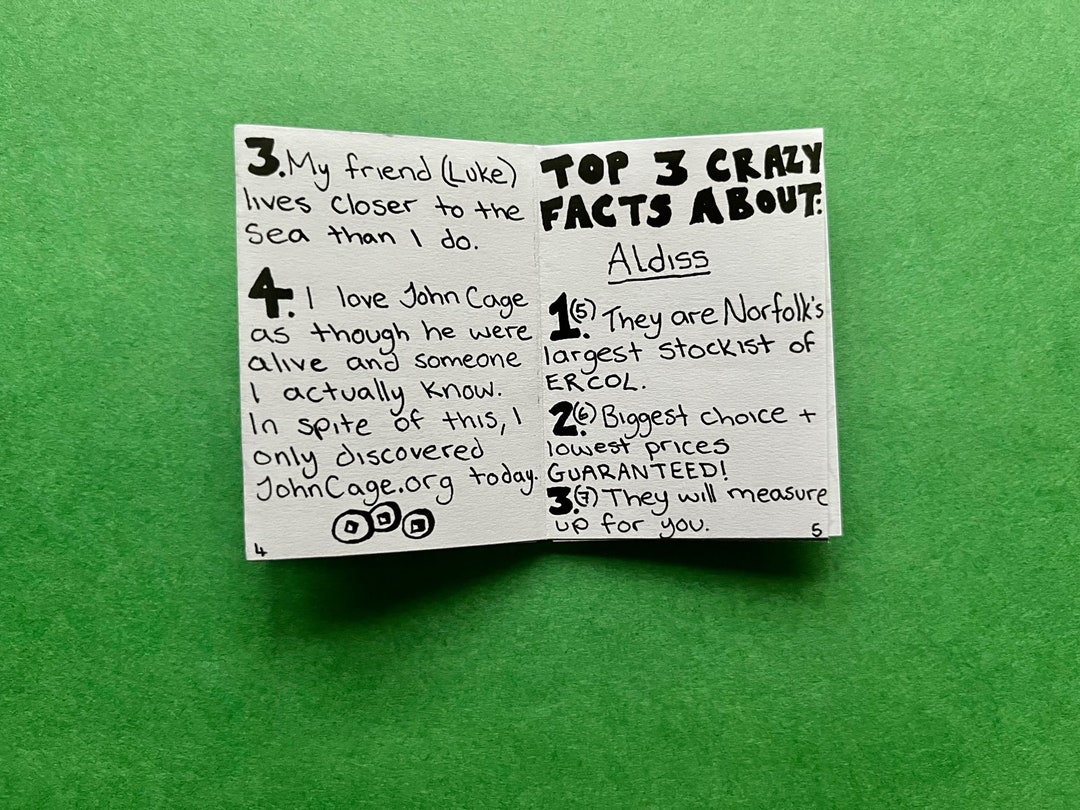 3. My friend (Luke)
lives closer to the
Sea than I do.
4. I love John Cage
as though he were
alive and someone
I actually know.
In spite of this, I
only discovered
JohnCage.org today.
4
TOP 3 CRAZY
FACTS ABOUT:
Aldiss
1.(5) They are Norfolk's
largest stockist of
ERCOL.
2.(6) Biggest choice +
lowest prices
GUARANTEED!
3.(7) They will measure
up for you.
5